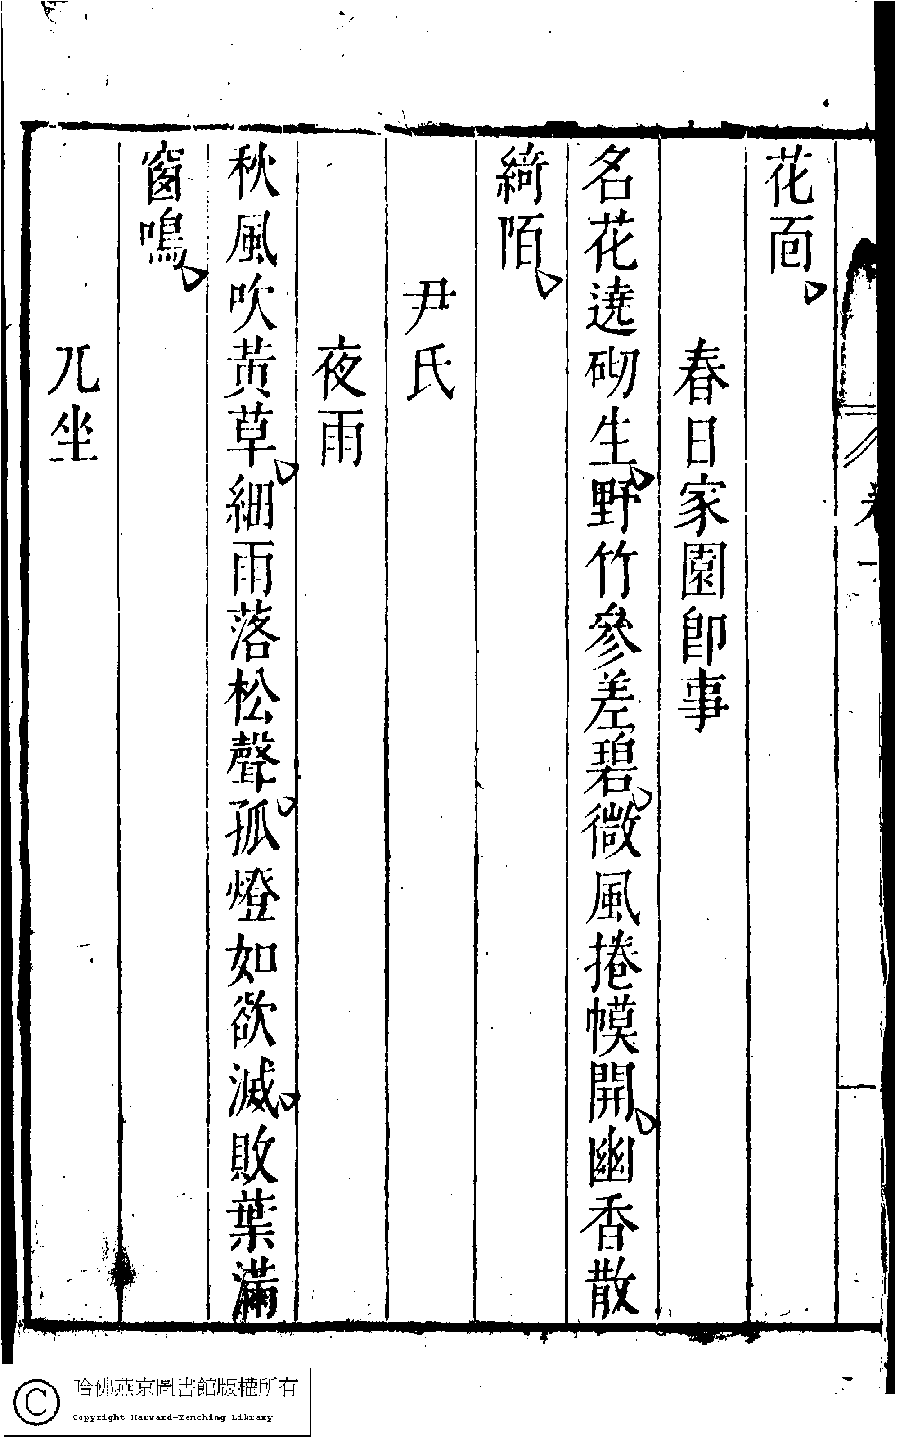 花面
春日家園卽事
名花遶砌生野竹參差碧微風捲幙開幽香散
綺陌
尹氏
夜雨
秋風吹黃草細雨落松聲孤燈如欲滅敗葉滿
窗鳴
兀坐
哈佛燕京圖書館版權所有
Copyright Harvard-Yenching Library